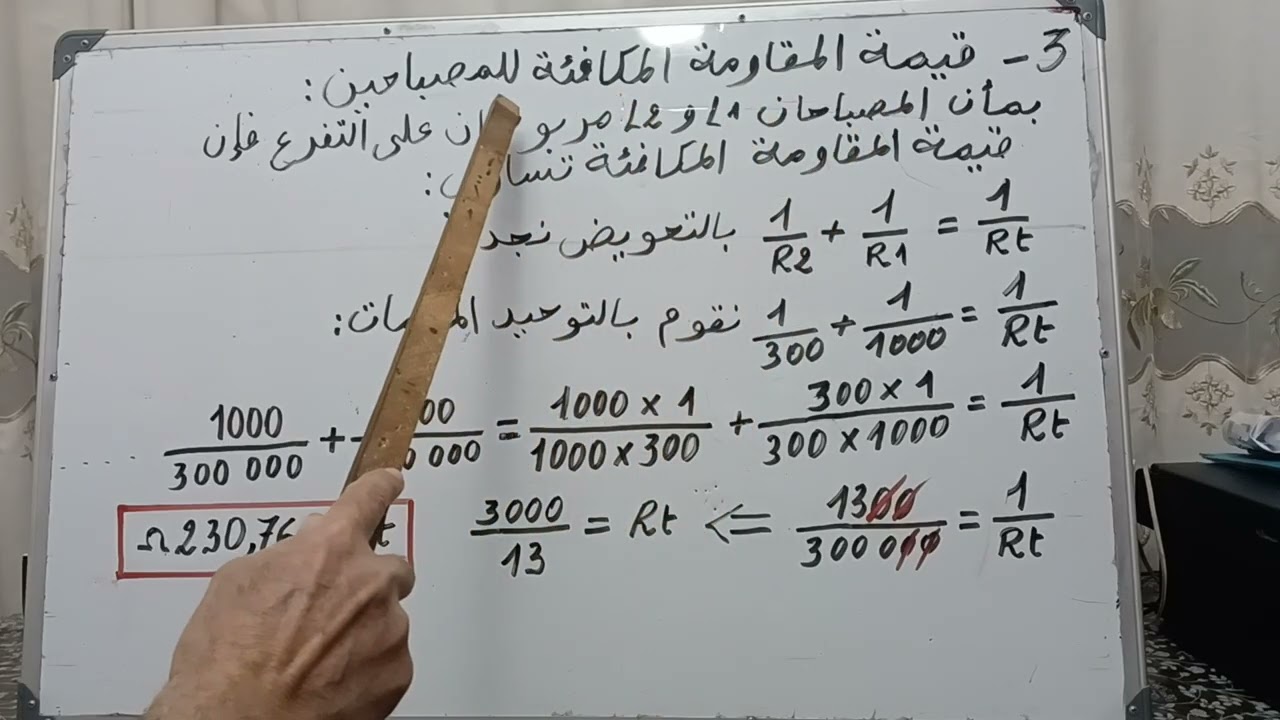 3- قيمة المقاومة المكافئة للمصباحين:
بمأن المصباحان L1 و L2 على التفرع فإن
قيمة المقاومة المكافئة :
1/Rt = 1/R1 + 1/R2 بالتعويض نجد
1/Rt = 1/1000 + 1/300 نقوم بالتوحيد :
1/Rt = 300 x 1/300 x 1000 + 1000 x 1/1000 x 300 = 00/000 + 1000/300 000
1/Rt = 1300/300 000 => Rt = 3000/13 t 230,76 Ω